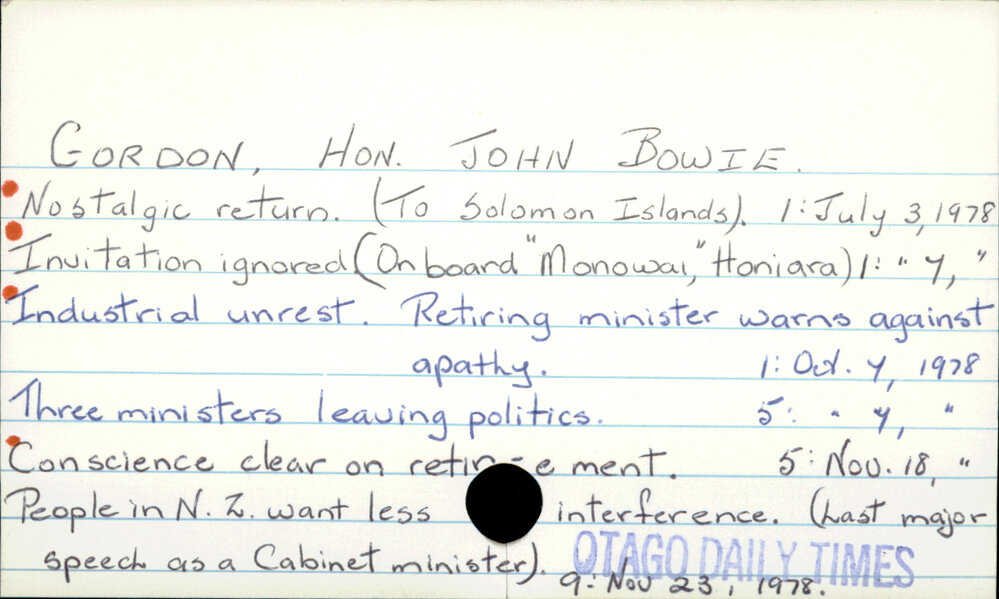 GORDON, HON. JOHN BOWIE.
Nostalgic return. (To Solomon Islands). 1: July 3, 1978
Invitation ignored (On board "Monowai," Honiara) 1: " 4, "
Industrial unrest. Retiring minister warns against
apathy. 1: Oct. 4, 1978
Three ministers leaving politics. 5: " 4, "
Conscience clear on retire-ment. 5: Nov. 18, "
People in N. Z. want less interference. (Last major
speech as a Cabinet minister). 9: Nov 23, 1978.
OTAGO DAILY TIMES